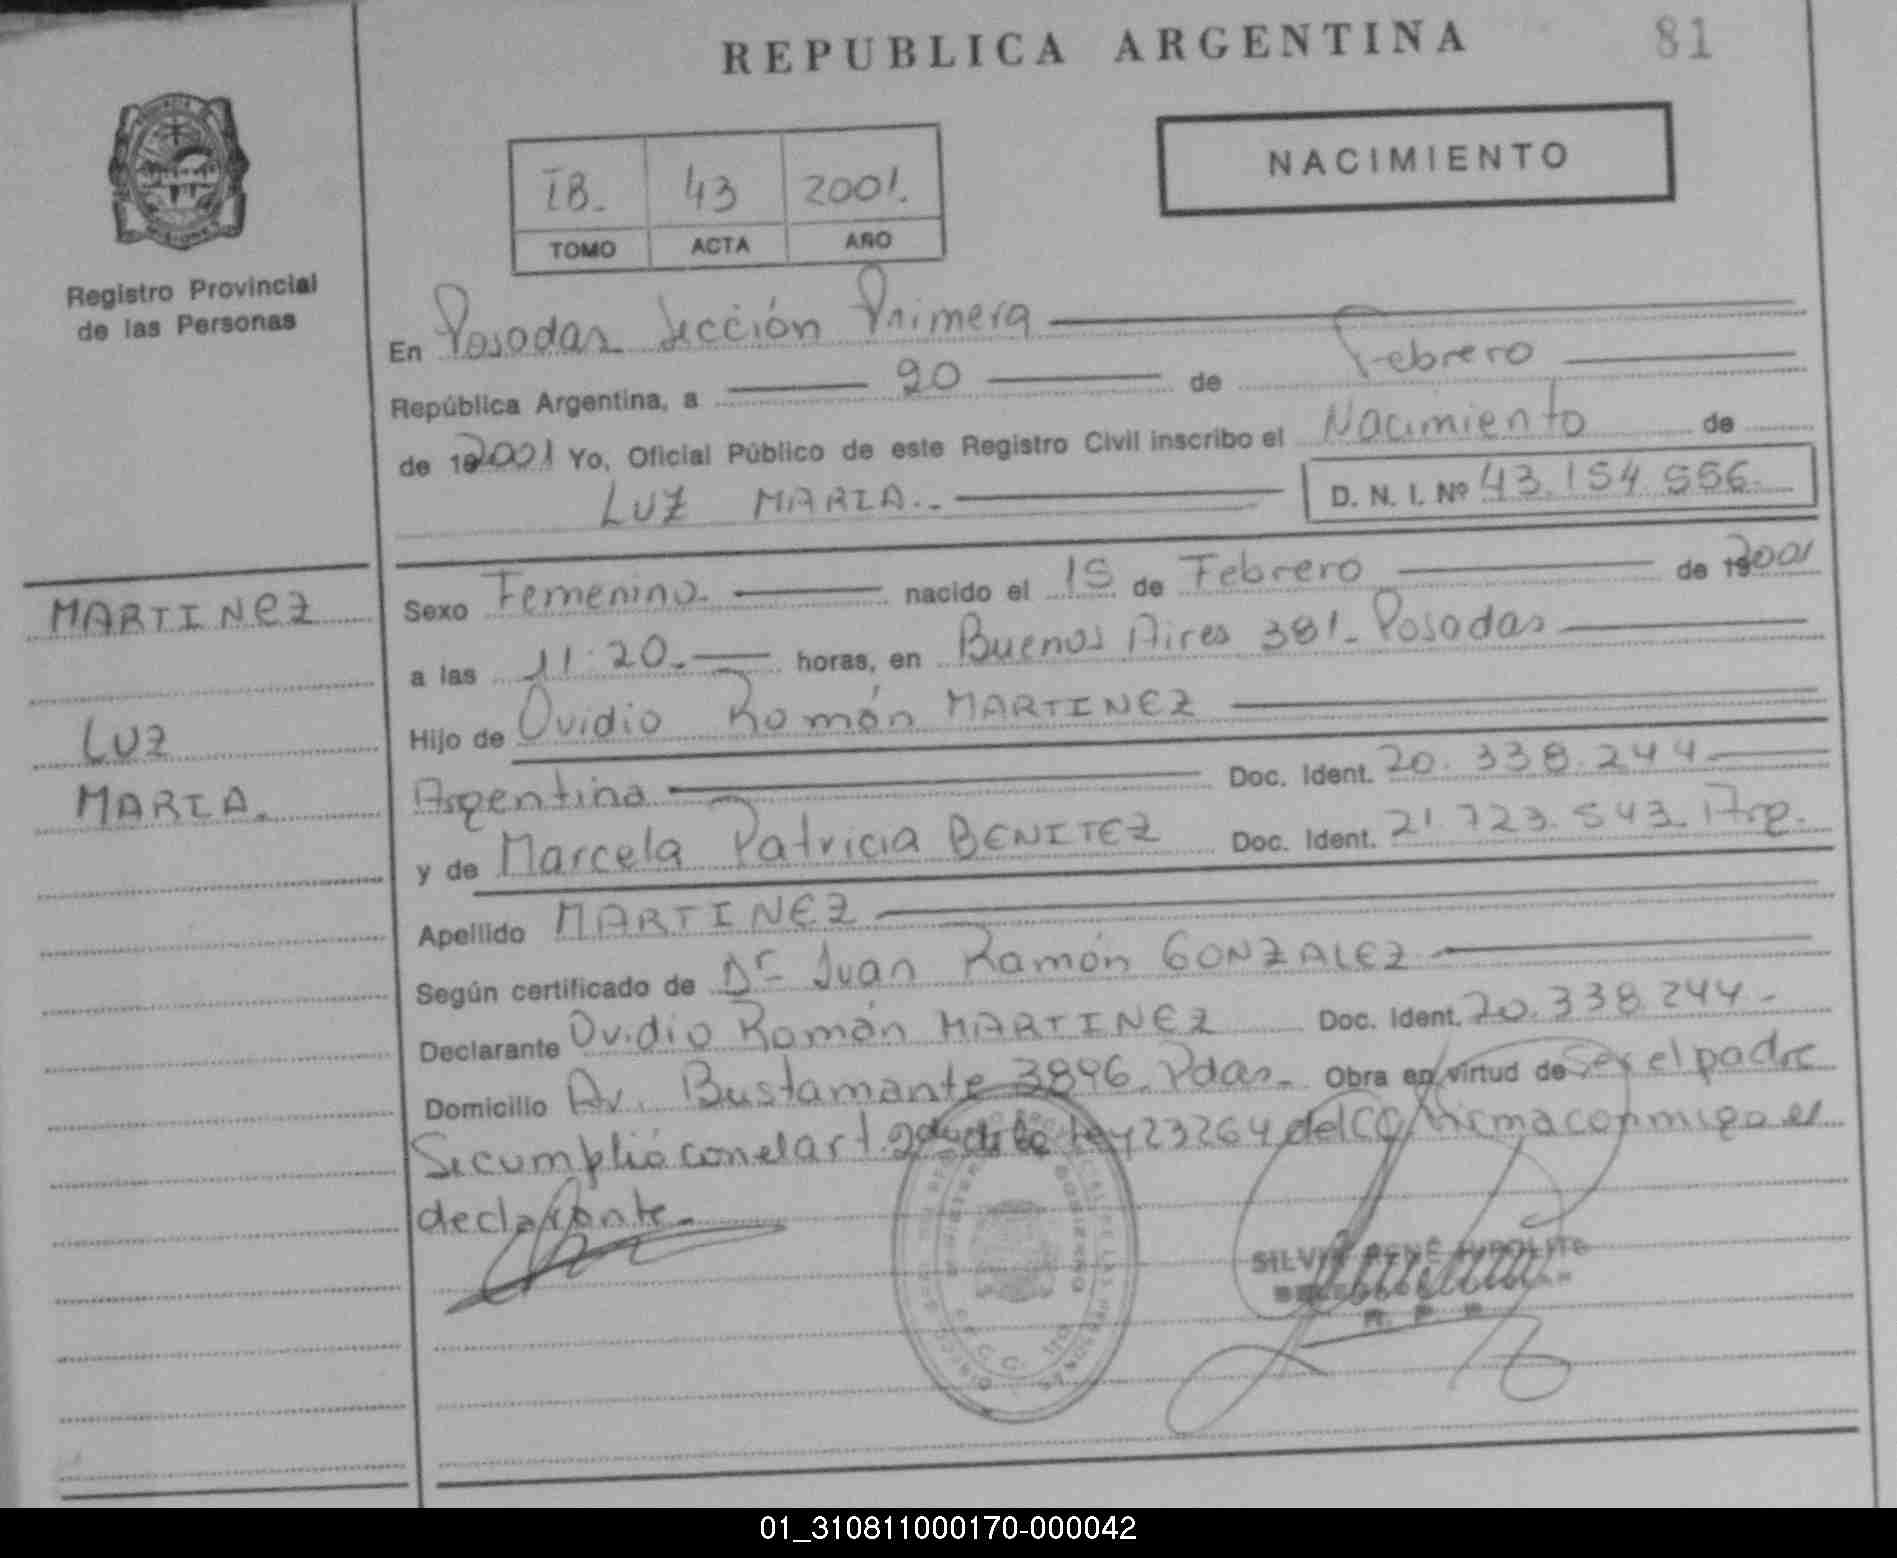 REPUBLICA ARGENTINA
81
NACIMIENTO
IB. 43 2001.
TOMO ACTA AÑO
Registro Provincial
de las Personas
En Posadas Sección Primera
República Argentina, a 20 de Febrero
de 2001 Yo, Oficial Público de este Registro Civil inscribo el Nacimiento de
LUZ MARIA.- D. N. I. Nº 43.154.556.
MARTINEZ
LUZ
MARIA.
Sexo Femenino. nacido el 15 de Febrero de 2001
a las 11:20.- horas, en Buenos Aires 381- Posadas
Hijo de Ovidio Román MARTINEZ
Argentina Doc. Ident. 20.338.244
y de Marcela Patricia BENITEZ Doc. Ident. 21.723.543. Arg.
Apellido MARTINEZ
Según certificado de Dr Juan Ramón GONZALEZ
Declarante Ovidio Román MARTINEZ Doc. Ident. 20.338.244-
Domicilio Av. Bustamante 3896. Pdas- Obra en virtud de ser el padre
Se cumplió con el art. 2 de la ley 23264 del CC firma conmigo el
declarante-
R. P. P.
01_310811000170-000042